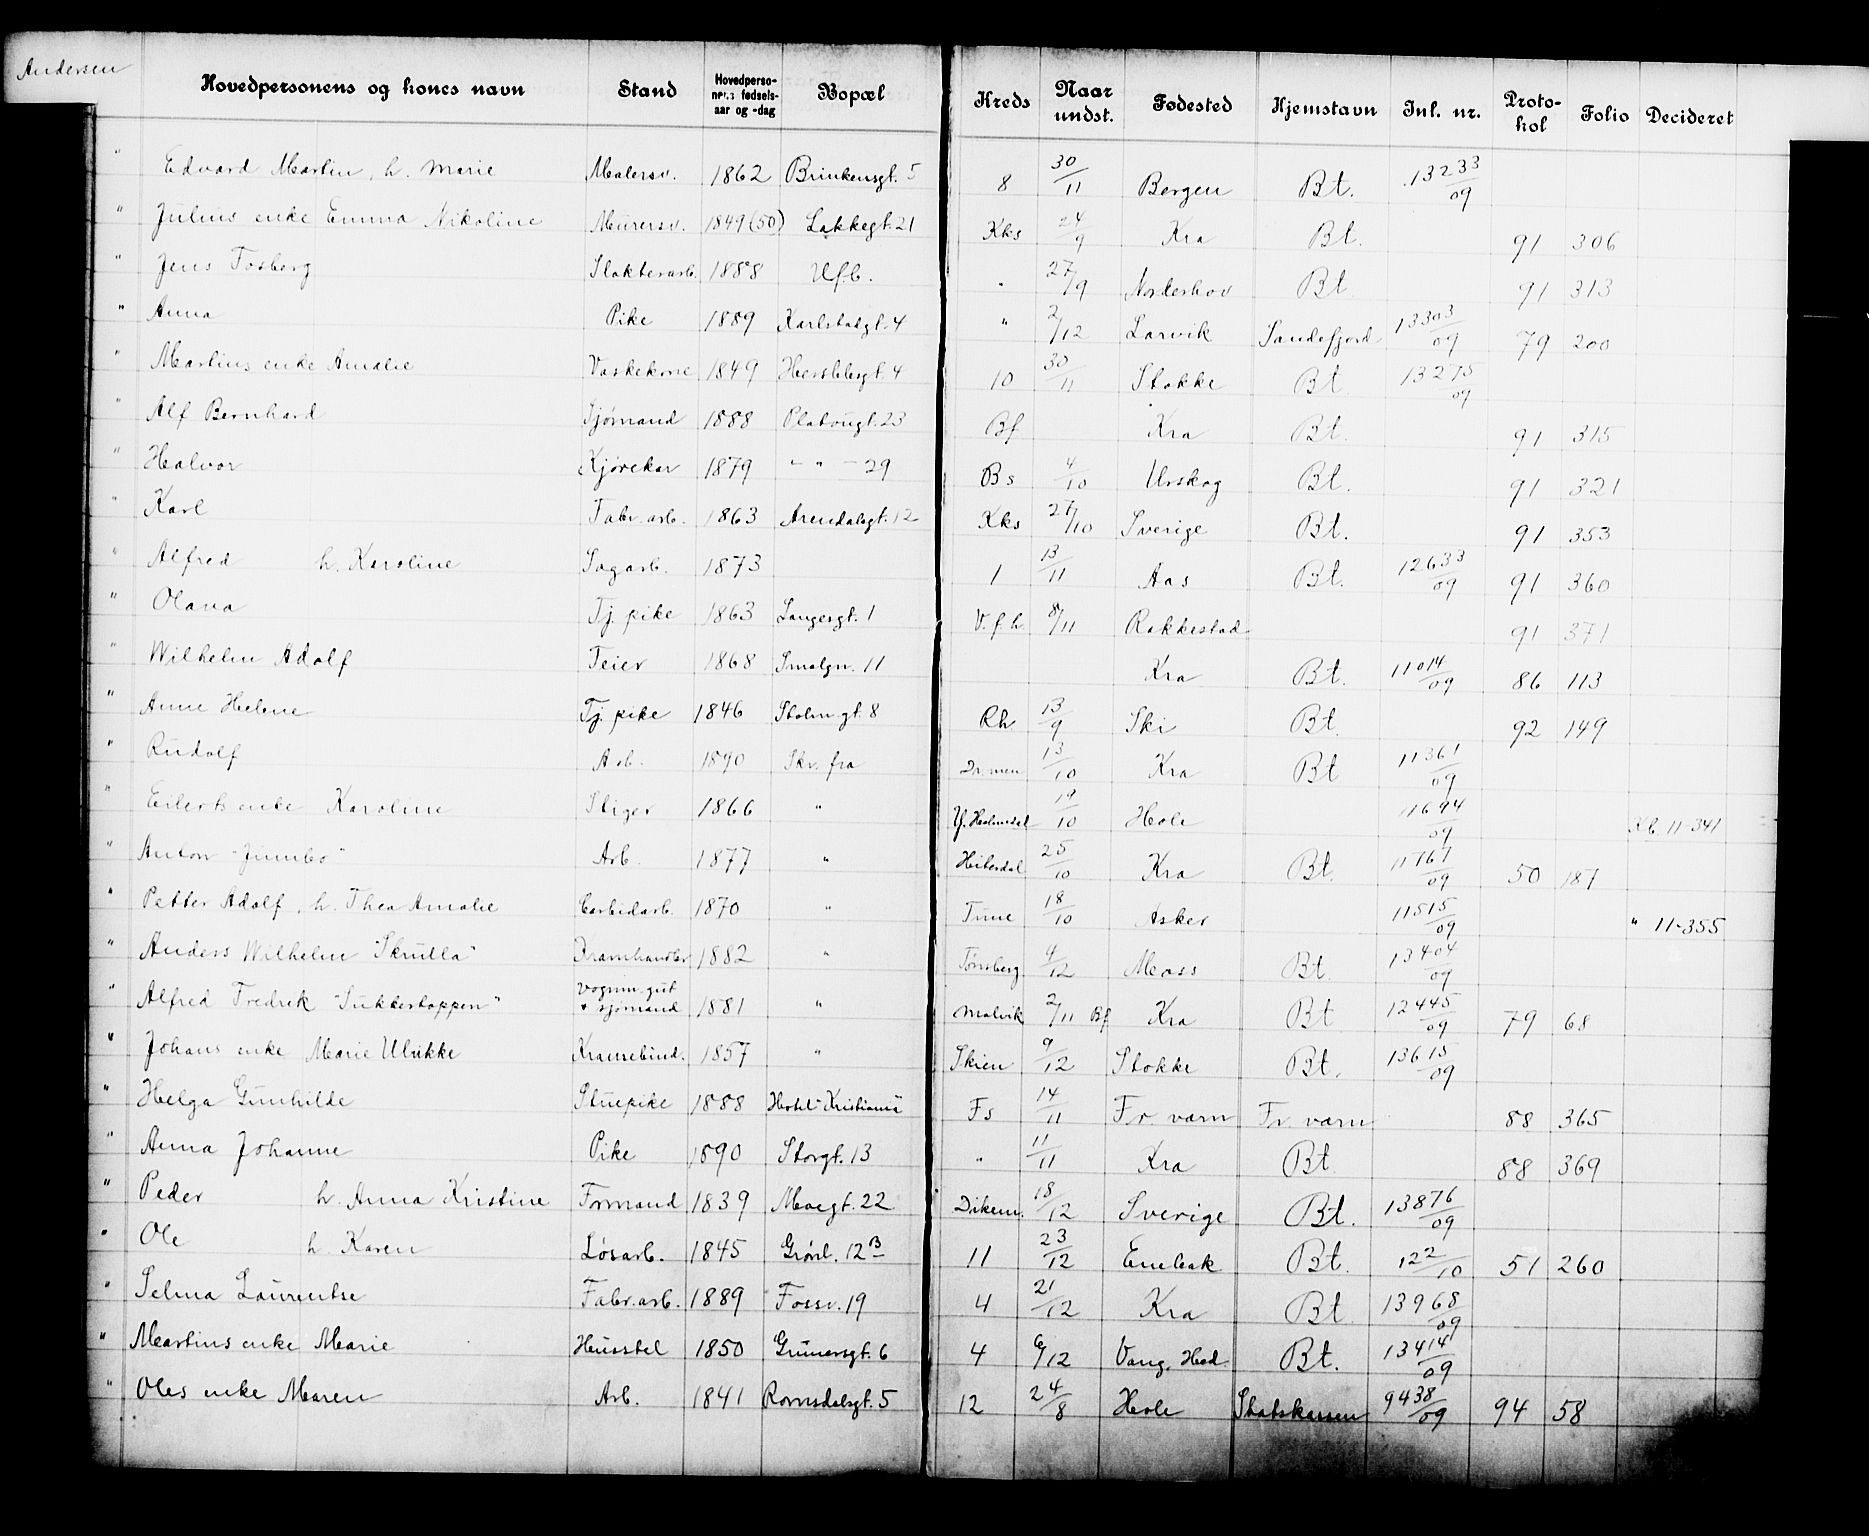 Andersen
Hovedpersonens og kones navn | Stand | Hovedpersonens fødselsaar og -dag | Bopæl | Kreds | Naar undst. | Fødested | Hjemstavn | Inl. nr. | Protokol | Folio | Decideret
" Edvard Martin, h. Marie | Malersv. | 1862 | Brinkensgt. 5 | 8 | 30/11 | Bergen | Bt. | 13233/09
" Julius enke Emma Nikoline | Murersv. | 1849(50) | Lakkegt. 21 | Kks | 24/9 | Kra | Bt. | 91 | 306
" Jens Fosberg | Slakterarb. | 1888 | Ufb. | " | 27/9 | Norderhov | Bt | 91 | 313
" Anna | Pike | 1889 | Karlstadgt. 4 | " | 2/12 | Larvik | Sandefjord | 13303/09 | 79 | 200
" Martins enke Amalie | Vaskekone | 1849 | Herslebsgt. 4 | 10 | 30/11 | Stokke | Bt. | 13275/09
" Alf Bernhard | Sjømand | 1888 | Platougt. 23 | Bf | Kra | Bt. | 91 | 315
" Halvor | Kjørekar | 1879 | - " - 29 | Bs | 4/10 | Urskog | Bt. | 91 | 321
" Karl | Fabr.arb. | 1863 | Arendalsgt. 12 | Kks | 27/10 | Sverige | Bt. | 91 | 353
" Alfred h. Karoline | Sagarb. | 1873 | 1 | 13/11 | Aas | Bt. | 12633/09 | 91 | 360
" Olava | Tj. pike | 1863 | Langesgt. 1 | V.f.h. | 8/11 | Rakkestad | 91 | 371
" Wilhelm Adolf | Feier | 1868 | Smalgn. 11 | Kra | Bt. | 11014/09 | 86 | 113
" Anne Helene | Tj. pike | 1846 | Holmgt. 8 | Rh. | 13/9 | Ski | Bt. | 92 | 149
" Rudolf | Arb. | 1890 | Skr. fra | Drmen | 13/10 | Kra | Bt | 11361/09
" Eilerts enke Karoline | Stiger | 1866 | " | Y. Holmedal | 19/10 | Hole | 11694/09 | Kb. 11-341
" Anton "Jumbo" | Arb. | 1877 | " | Hiterdal | 25/10 | Kra | Bt. | 11767/09 | 50 | 187
" Petter Adolf, h. Thea Amalie | Carbidarb. | 1870 | " | Tune | 18/10 | Asker | 11515/09 | " 11-355
" Anders Wilhelm "Skrulla" | Kramhandler | 1882 | " | Tønsberg | 4/12 | Moss | Bt. | 13404/09
" Alfred Fredrik "Sukkertoppen" | Vognm.gut + sjømand | 1881 | " | Malvik | 2/11 Bf | Kra | Bt | 12445/09 | 79 | 68
" Johans enke Marie Ulrikke | Kransebind. | 1857 | " | Skien | 9/12 | Stokke | Bt. | 13615/09
" Helga Gunhilde | Stuepike | 1888 | Hotel "Kristiania" | Fs | 14/11 | Fr. værn | Fr. værn | 88 | 365
" Anna Johanne | Pike | 1890 | Storgt. 13 | " | 11/11 | Kra | Bt. | 88 | 369
" Peder h. Anna Kristine | Formand | 1839 | Moegt. 22 | Dikem. | 18/12 | Sverige | Bt. | 13876/09
" Ole h. Karen | Løsarb. | 1845 | Grønl. 12 B | 11 | 23/12 | Enebak | Bt. | 122/10 | 51 | 260
" Selma Laurentse | Fabr.arb. | 1889 | Fossv. 19 | 4 | 21/12 | Kra | Bt. | 13968/09
" Martins enke Marie | Husstel | 1850 | Grünersgt. 6 | 4 | 6/12 | Vang, Hed. | Bt. | 13414/09
" Oles enke Maren | Arb. | 1841 | Romsdalsgt. 5 | 12 | 24/8 | Hole | Statskassen | 9438/09 | 94 | 58